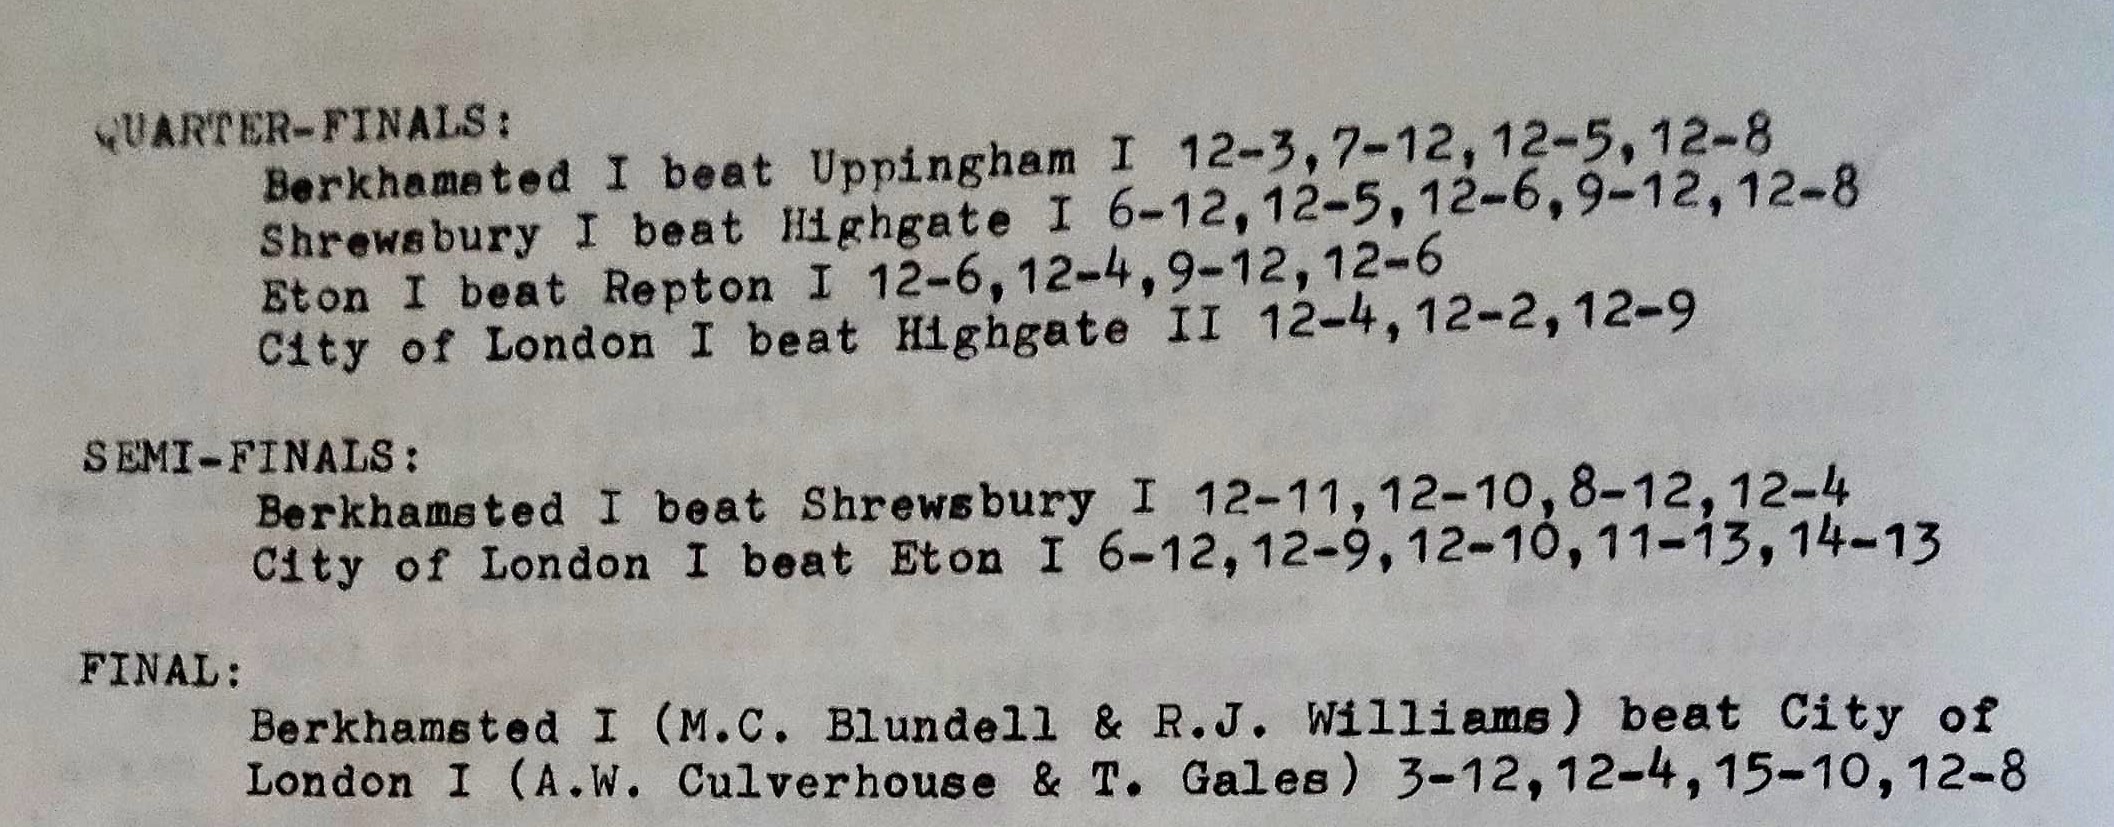 QUARTER-FINALS:
Berkhamsted I beat Uppingham I 12-3, 7-12, 12-5, 12-8
Shrewsbury I beat Highgate I 6-12, 12-5, 12-6, 9-12, 12-8
Eton I beat Repton I 12-6, 12-4, 9-12, 12-6
City of London I beat Highgate II 12-4, 12-2, 12-9
SEMI-FINALS:
Berkhamsted I beat Shrewsbury I 12-11, 12-10, 8-12, 12-4
City of London I beat Eton I 6-12, 12-9, 12-10, 11-13, 14-13
FINAL:
Berkhamsted I (M.C. Blundell & R.J. Williams) beat City of
London I (A.W. Culverhouse & T. Gales) 3-12, 12-4, 15-10, 12-8